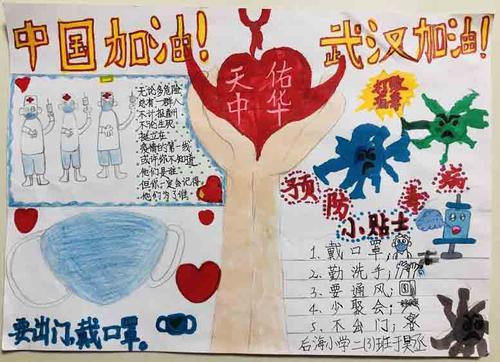 中国加油!
武汉加油!
天佑
中华
无论多危险
总有一群人
不计报酬
不论生死
挺立在
疫情的第一线
或许你不知道
他们是谁
但你一定会记得
他们为了谁
预防毒病
小贴士
1. 戴口罩;
2. 勤洗手;
3. 要通风;
4. 少聚会;
5. 不出门;
后海小学二(3)班于
要出门,戴口罩。